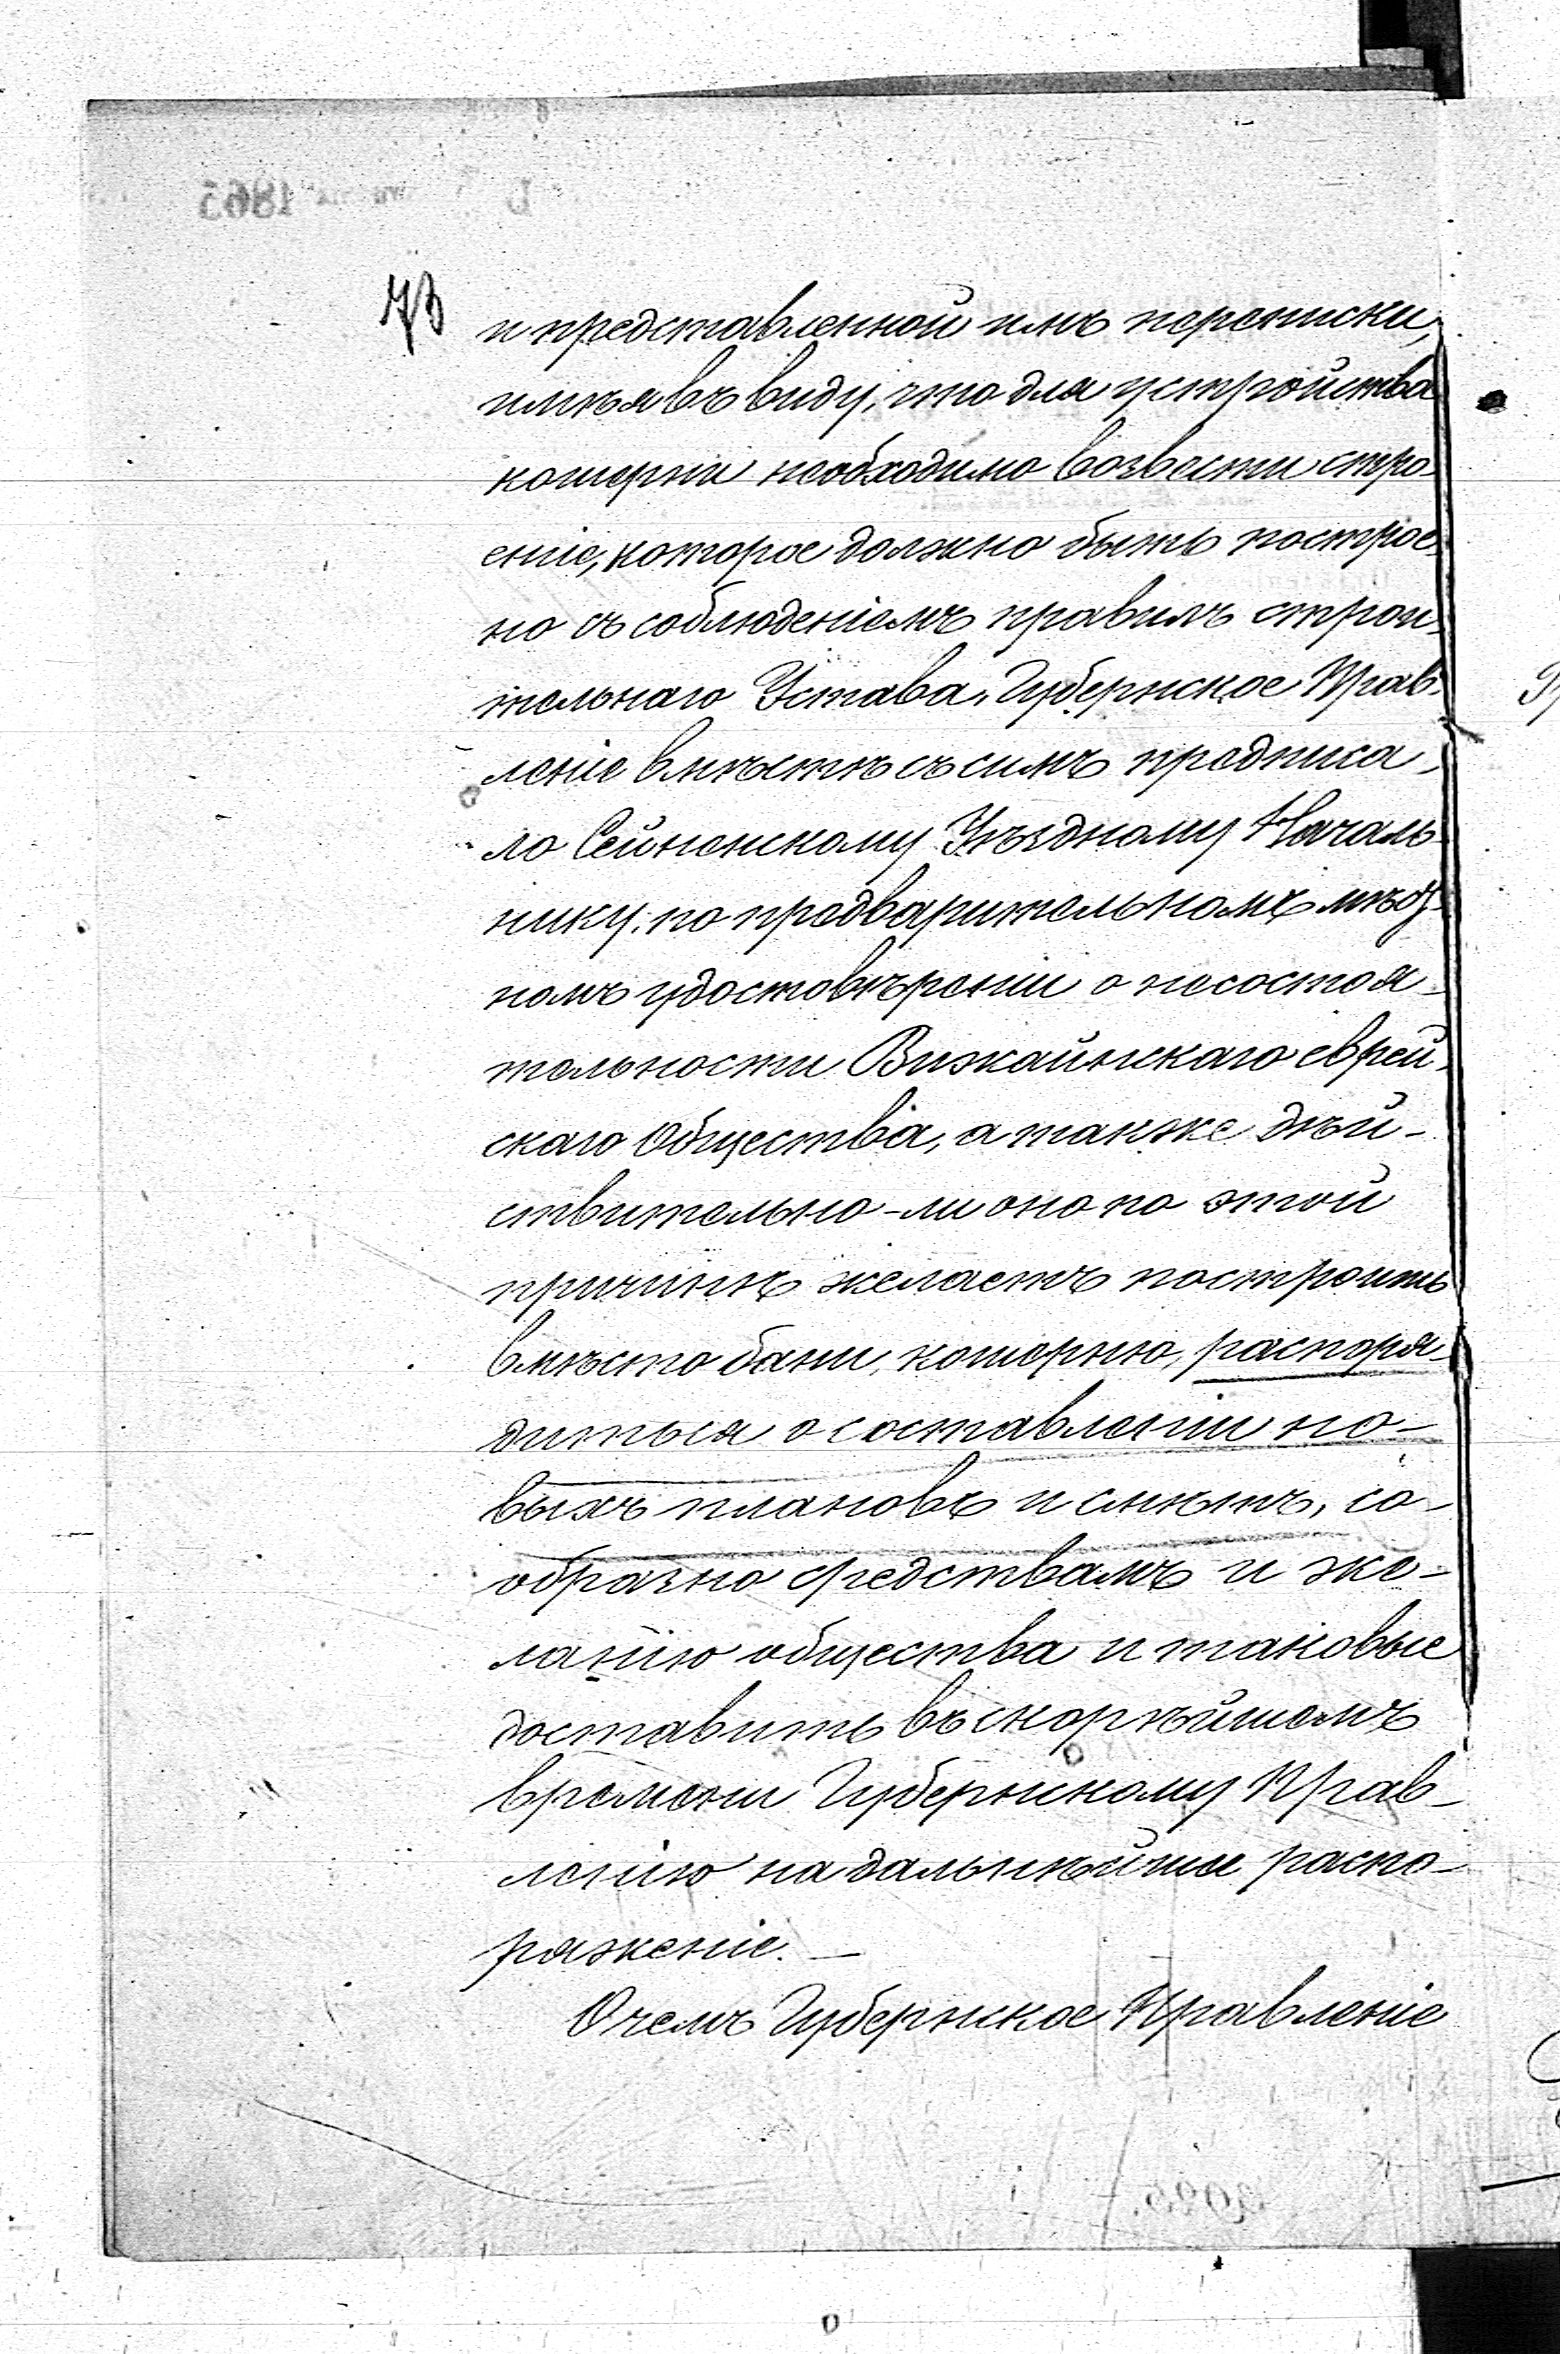 73
и представленной имъ переписки,
имѣя въ виду, что для устройства
кошерни необходимо возвести стро-
еніе, которое должно быть построе-
но съ соблюденіемъ правилъ строи-
тельнаго Устава, Губернское Прав-
леніе вмѣстѣ съ симъ предписа-
ло Сейненскому Уѣздному Началь-
нику, по предварительномъ
номъ удостовѣреніи о несостоя-
тельности Вижайнскаго еврей-
скаго Общества, а также дѣй-
ствительно-ли оно по этой
причинѣ желаетъ построить
вмѣсто бани, кошерню, распоря-
диться о составленіи но-
выхъ плановъ и смѣтъ, со-
образно средствамъ и же-
ланію общества и таковые
доставить въ скорѣйшемъ
времени Губернскому Прав-
ленію на дальнѣйшее распо-
ряженіе. —
О чемъ Губернское Правленіе